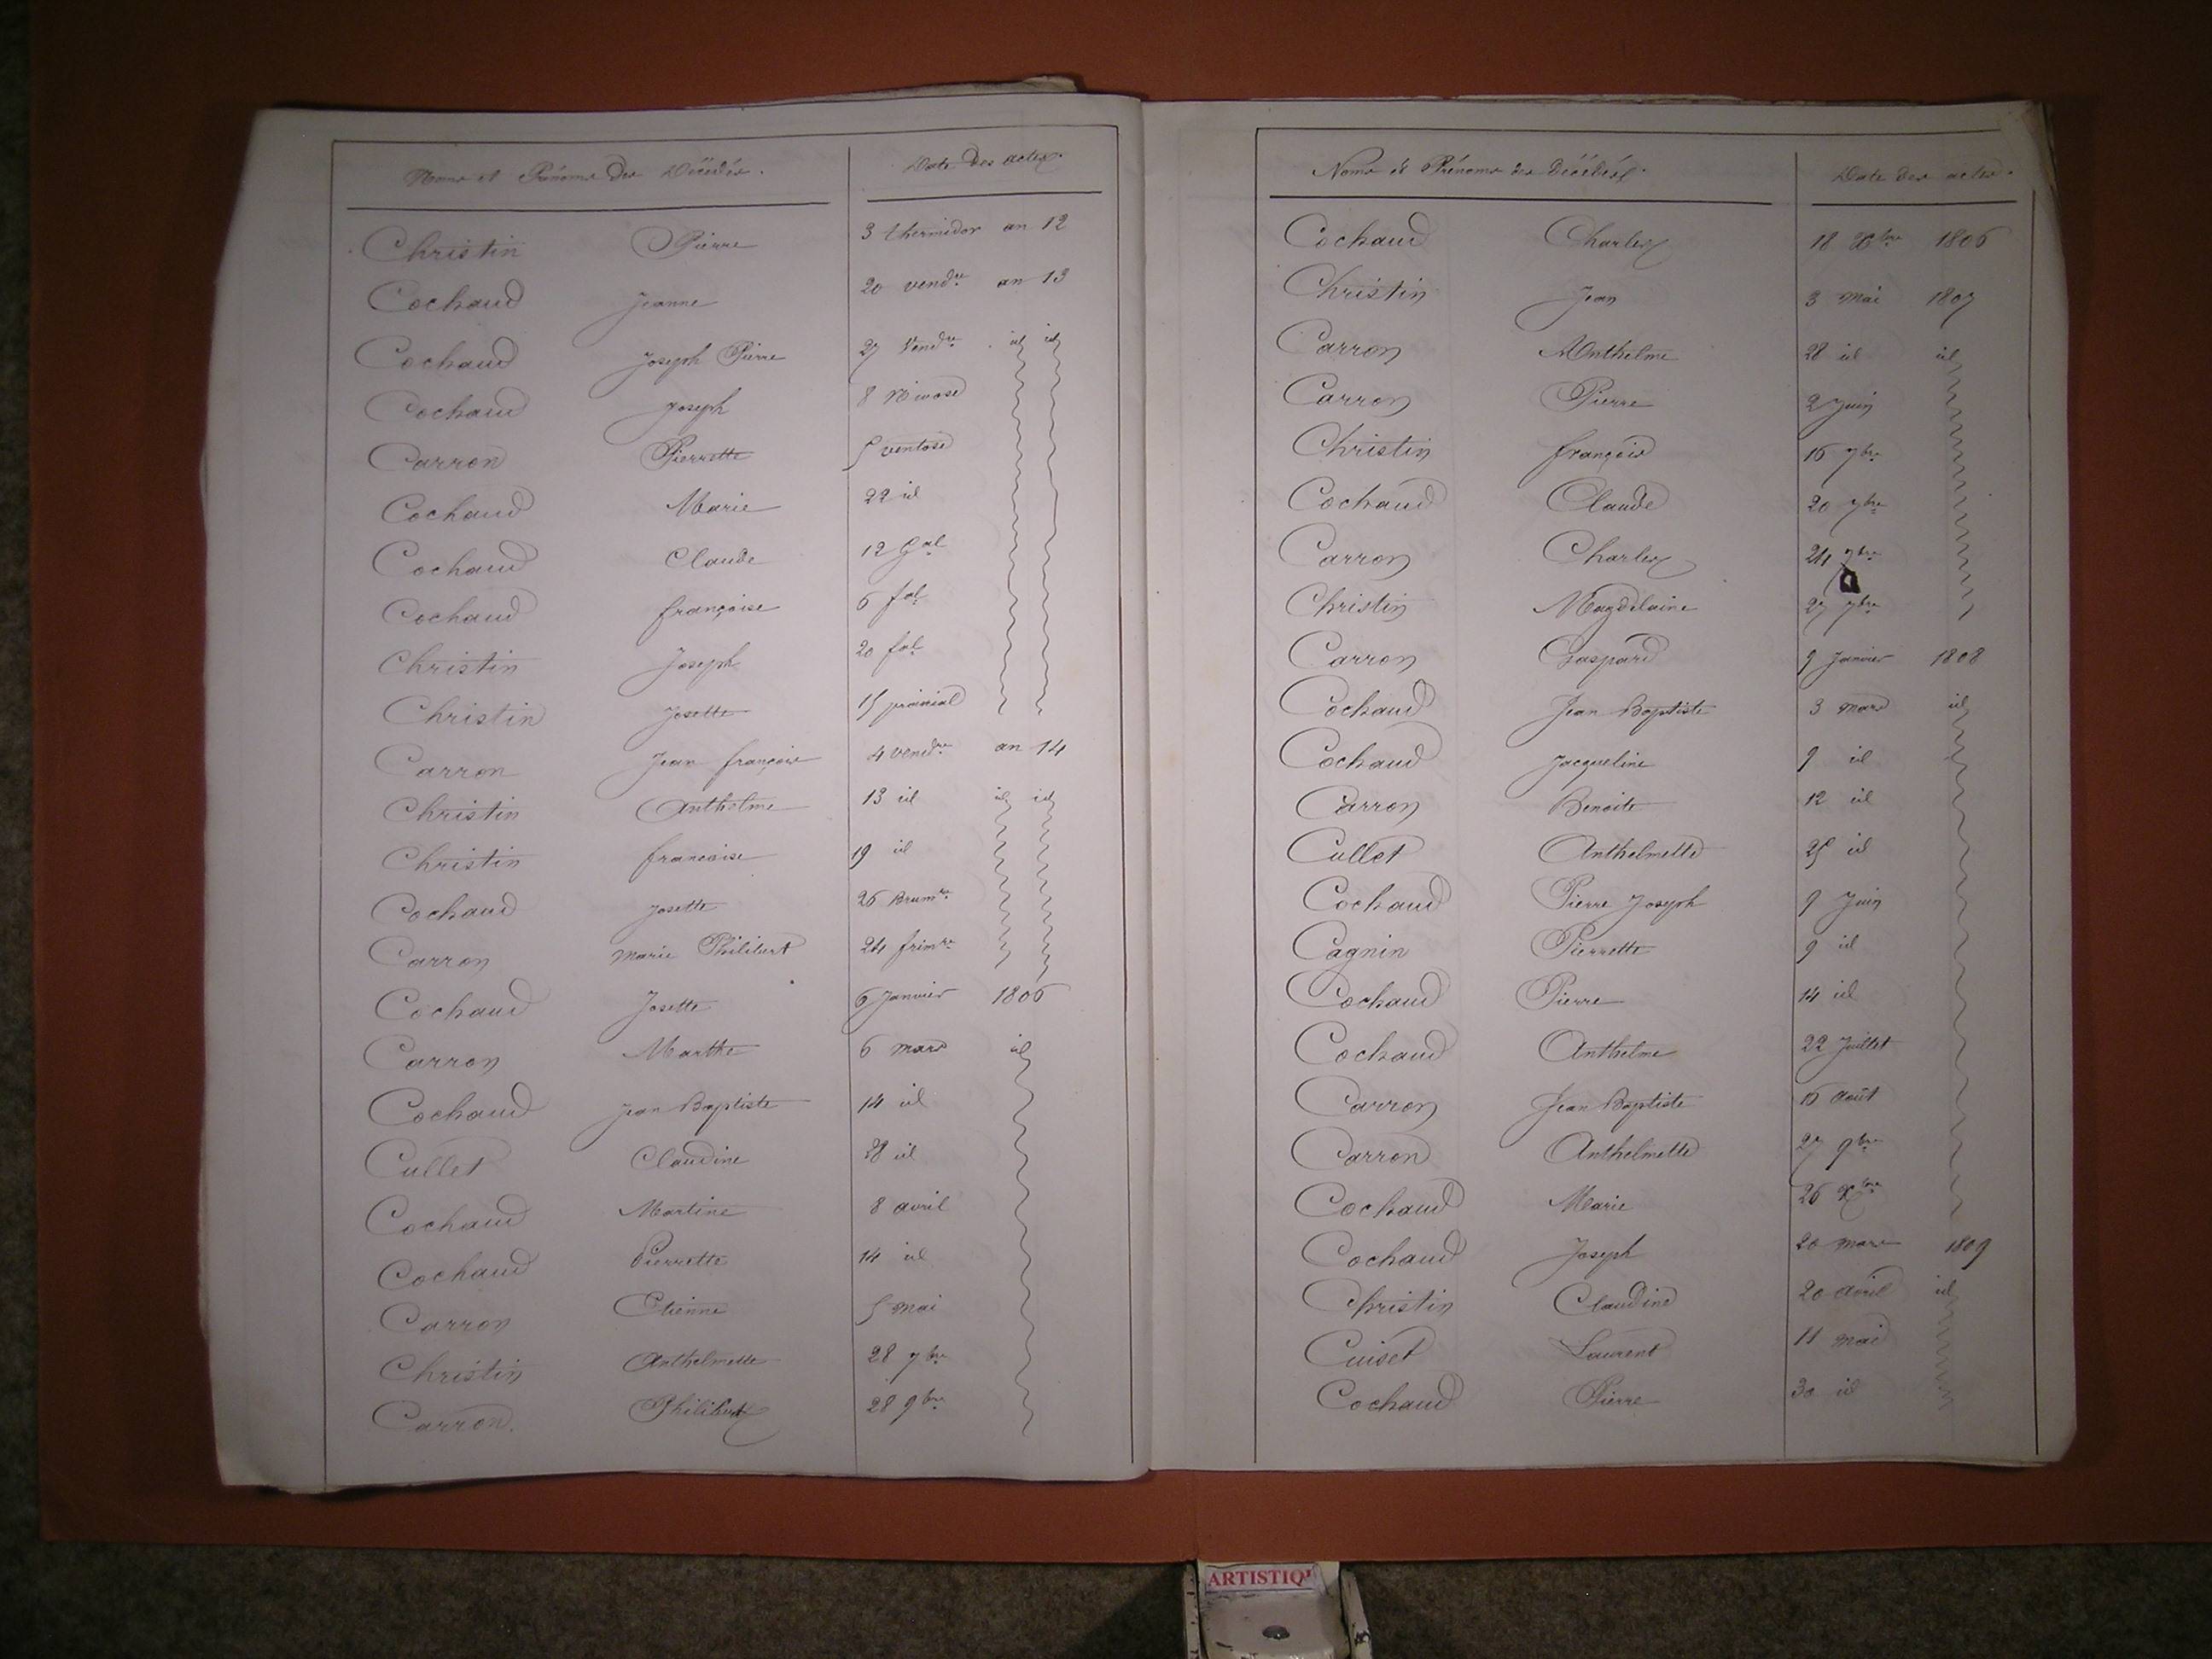 Noms et Prénoms des Décédés. Date des actes.
Christin Pierre 3 thermidor an 12
Cochaud Jeanne 20 vend.re an 13
Cochaud Joseph Pierre 27 Vend.re id id
Cochaud Joseph 8 Nivose
Carron Pierrette 5 ventose
Cochaud Marie 22 id
Cochaud Claude 12 G.al
Cochaud françoise 6 f.al
Christin Joseph 20 f.al
Christin Josette 15 prairial
Carron Jean françois 4 vend.re an 14
Christin Anthelme 13 id id id
Christin francoise 19 id
Cochaud Josette 26 Brum.re
Carron Marie Philibert 24 frim.re
Cochaud Josette 6 Janvier 1806
Carron Marthe 6 mars id
Cochaud Jean Baptiste 14 id
Cullet Claudine 28 id
Cochaud Martine 8 avril
Cochaud Pierrette 14 id
Carron Etienne 5 mai
Christin Anthelmette 28 7bre
Carron. Philibert 28 9bre
Noms et Prénoms des Décédés. Date des actes.
Cochaud Charles 18 Xbre 1806
Christin Jean 3 Mai 1807
Carron Anthelme 28 id id
Carron Pierre 2 Juin
Christin françois 16 7bre
Cochaud Claude 20 7bre
Carron Charles 24
Christin Magdelaine 27 7bre
Carron Gaspard 9 Janvier 1808
Cochaud Jean Baptiste 3 mars id
Cochaud Jacqueline 9 id
Carron Benoite 12 id
Cullet Anthelmette 25 id
Cochaud Pierre Joseph 9 Juin
Cagnin Pierrette 9 id
Cochaud Pierre 14 id
Cochaud Anthelme 22 Juillet
Carron Jean Baptiste août
Carron Anthelmette 27 9bre
Cochaud Marie 26 Xbre
Cochaud Joseph 20 mars 1809
Christin Claudine 20 avril id
Cuiset Laurent 11 mai
Cochaud Pierre 30 id
ARTISTIQ